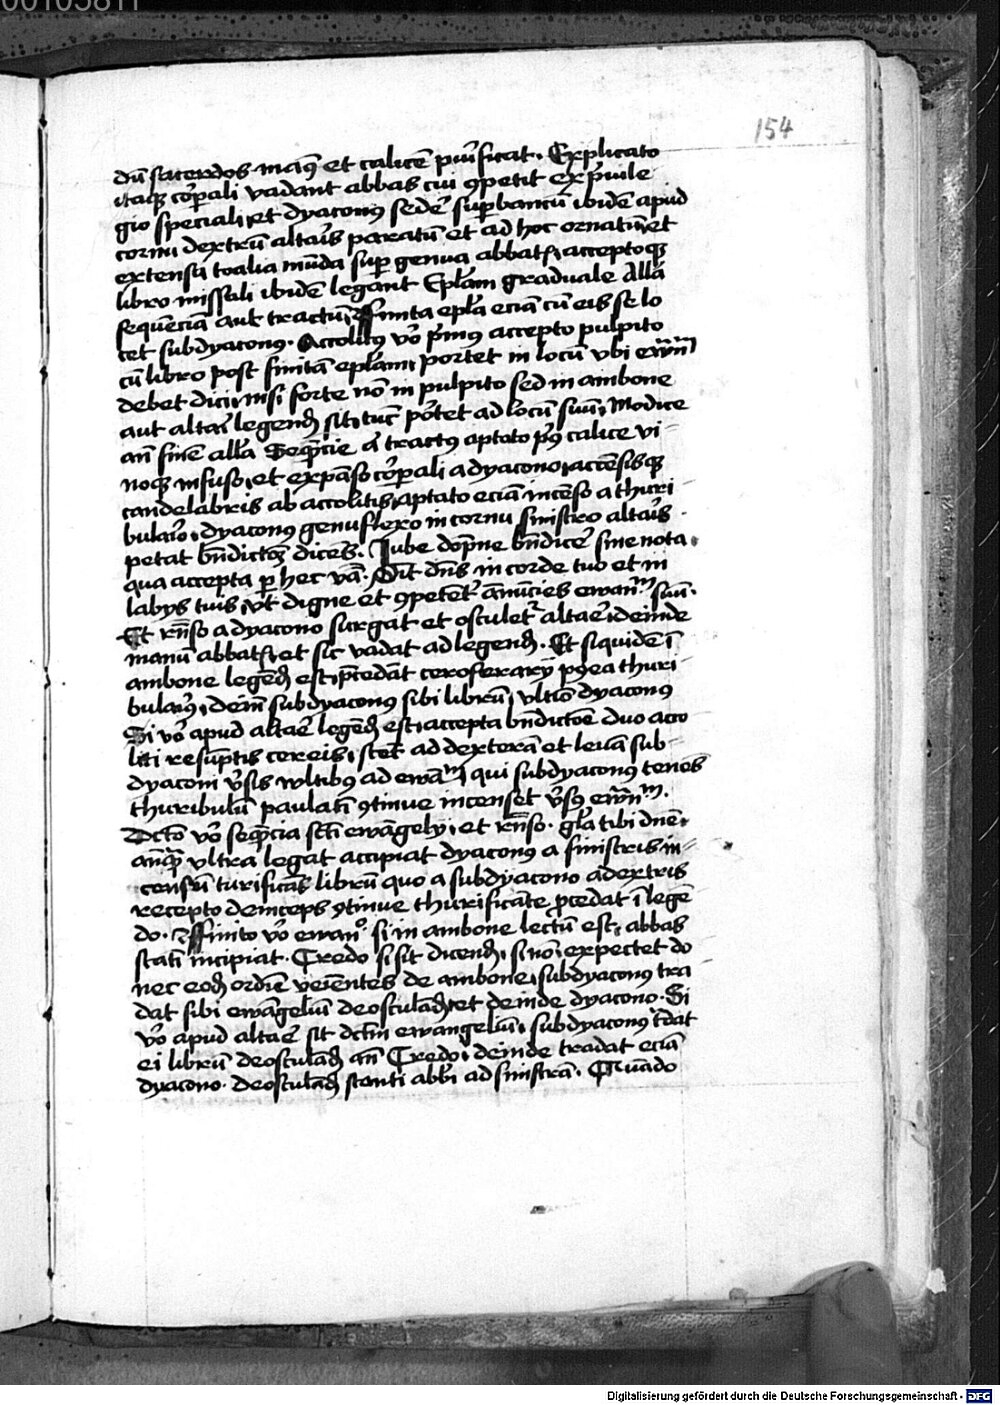 00105811
154
dū sacerdos man⁹ et calicē pu͛ificat. Explicato
itaqꝫ cor͛pali vadant abbas cui ꝯpetit ex p͛uile
gio speciali, et dyacon⁹ sede͛ sup͛ bancū ibidē apud
cornu dextrū alta͛is paratū et ad hoc ornatū, et
extensa toalia mūda sup͛ genua abbatꝭ, acceptoqꝫ
libro missali ibidē legant Epl̄am graduale All̄a
sequēciā aut tractū, ffinita epl̄a eciā cū eis se lo
cet subdyacon⁹. Accolit⁹ vo͛ p͛mus accepto pulpito
cū libro post finitā epl̄am, portet in locū vbi ewan̄m̄
debet dici, nisi forte nō in pulpito sed in ambone
aut alta͛i legend̄ sit, tūc po͛tet ad locū suū, Modice
an̄ finē all̄a Seq̄ncie a͛ tract⁹ aptato p͛⁹ calice vi-
noqꝫ infuso, et expāso cor͛pali a dyacono, accēsisqꝫ
candelabris ab accolitis, aptato eciā incēso a thuri-
bula͛io, dyacon⁹ genuflexo in cornu sinistro alta͛is
petat bn̄dictōꝫ dicēs. Iube dōpne bn̄dice͛ sine nota.
qua accepta p͛ hec v͛ba. Sit dn̄s in corde tuo et in
labys tuis, vt digne et ꝯpetēt͛ annūcies ewan̄m̄ suū.
Et rn̄so a dyacono surgat et osculet͛ alta͛e, deinde
manū abbatꝭ, et sic vadat ad legend̄. Et siquidē ī
ambone legēd̄ est, p͛cedāt ceroferarij p⁹ea thuri-
bula͛i⁹, deīn subdyacon⁹ sibi librū, vltīo dyacon⁹
Si vo͛ apud alta͛e legēd̄ est, accepta bn̄dictōe duo acco
liti resūptis cereis, stēt ad dexterā et leuā sub-
dyaconi v͛sis wltib⁹ ad ewān̄m̄, qui subdyacon⁹ tenēs
thuribulū paulati ꝯtinue incenset v͛s⁹ ewn̄m̄.
Dc̄to vo͛ seq̄ncia sc̄ti ewāgely, et rn̄so. gl̄a tibi dn̄e,
anq̄͛ vltra legat accipiat dyacon⁹ a sinistris in-
censū turificās librū quo a subdyacono a dextris
recepto deinceps ꝯtinue thurificāte p͛cedat ī legē
do. ffinito vo͛ ewan̄o si in ambone lectū est, abbas
statī incipiat. Credo si sit dicend̄, si nō, expectet do
nec eod̄ ordie ve͛ientes de ambone, subdyacon⁹ tra
dat sibi ewāgeliū deosculād̄, et deinde dyacono. Si
vo͛ apud alta͛e sit dc̄tm ewangeliū, subdyacon⁹ t͛dat
ei librū deosculād̄ an̄ Credo, deinde tradat eciā
dyacono. deosculād̄ stanti abb͛i ad sinistrā. Quādo
Digitalisierung gefördert durch die Deutsche Forschungsgemeinschaft - DFG